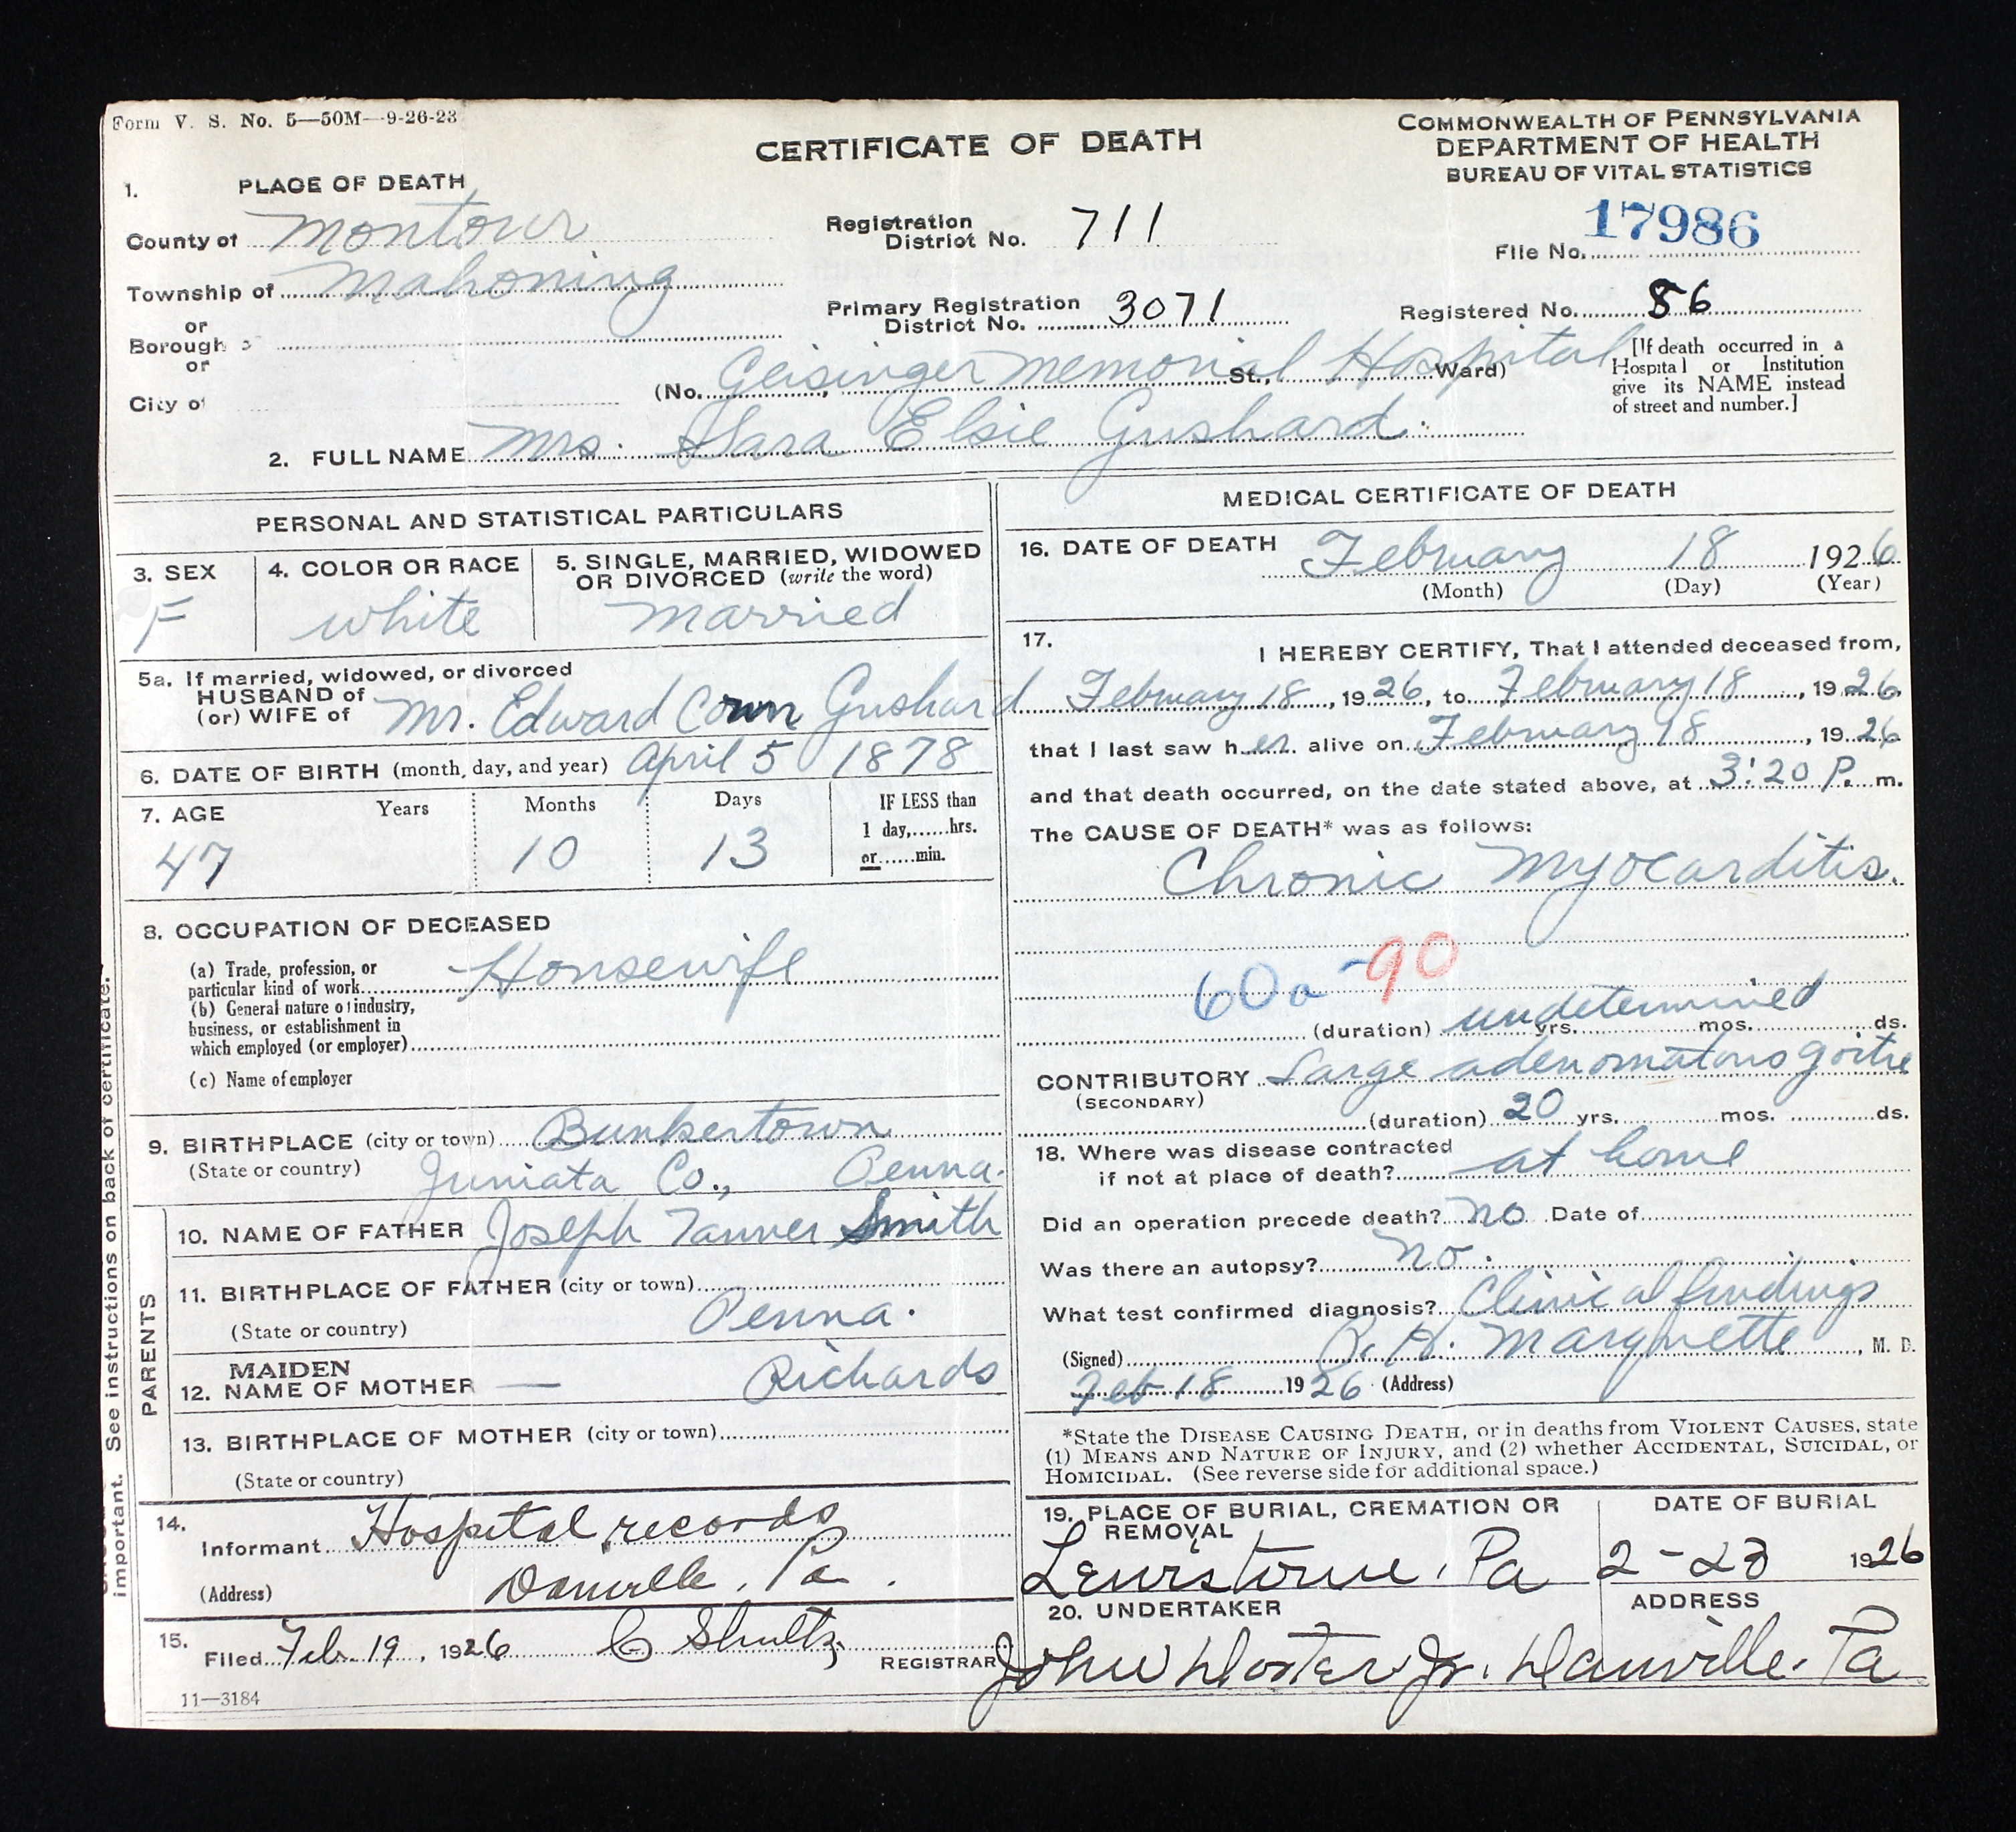 Form V. S. No. 5—50M—9-26-23
CERTIFICATE OF DEATH
COMMONWEALTH OF PENNSYLVANIA
DEPARTMENT OF HEALTH
BUREAU OF VITAL STATISTICS
1. PLACE OF DEATH
County of Montour
Township of Mahoning
or
Borough
or
City of
Registration District No. 711
Primary Registration District No. 3071
17986
File No.
Registered No. 86
(No. Geisinger Memorial Hospital St., Ward)
[If death occurred in a
Hospital or Institution
give its NAME instead
of street and number.]
2. FULL NAME Mrs. Sara Elsie Gushard.
PERSONAL AND STATISTICAL PARTICULARS
3. SEX
F
4. COLOR OR RACE
white
5. SINGLE, MARRIED, WIDOWED
OR DIVORCED (write the word)
Married
5a. If married, widowed, or divorced
HUSBAND of
(or) WIFE of Mr. Edward Gushard
6. DATE OF BIRTH (month, day, and year) April 5 1878
7. AGE Years Months Days IF LESS than
1 day,......hrs.
or......min.
47 10 13
8. OCCUPATION OF DECEASED
(a) Trade, profession, or
particular kind of work Housewife
(b) General nature of industry,
business, or establishment in
which employed (or employer)
(c) Name of employer
9. BIRTHPLACE (city or town) Bunkertown
(State or country) Juniata Co., Penna.
PARENTS
10. NAME OF FATHER Joseph Tanner Smith
11. BIRTHPLACE OF FATHER (city or town)
(State or country) Penna.
12. MAIDEN NAME OF MOTHER — Richards
13. BIRTHPLACE OF MOTHER (city or town)
(State or country)
14.
Informant Hospital records
(Address) Danville, Pa.
15.
Filed Feb. 19, 1926 C Shultz
REGISTRAR
11—3184
important. See instructions on back of certificate.
MEDICAL CERTIFICATE OF DEATH
16. DATE OF DEATH February 18 1926
(Month) (Day) (Year)
17. I HEREBY CERTIFY, That I attended deceased from,
February 18, 1926, to February 18, 1926,
that I last saw her alive on February 18, 1926
and that death occurred, on the date stated above, at 3:20 P. m.
The CAUSE OF DEATH* was as follows:
Chronic Myocarditis.
60a -90
(duration) undetermined yrs. mos. ds.
CONTRIBUTORY Large adenomatous goitre
(SECONDARY)
(duration) 20 yrs. mos. ds.
18. Where was disease contracted
if not at place of death? at home
Did an operation precede death? no Date of
Was there an autopsy? no.
What test confirmed diagnosis? Clinical findings
(Signed) R. H. Marquette, M. D.
Feb 18 1926 (Address)
*State the DISEASE CAUSING DEATH, or in deaths from VIOLENT CAUSES, state
(1) MEANS AND NATURE OF INJURY, and (2) whether ACCIDENTAL, SUICIDAL, or
HOMICIDAL. (See reverse side for additional space.)
19. PLACE OF BURIAL, CREMATION OR
REMOVAL
Lewistown, Pa
DATE OF BURIAL
2-23 1926
20. UNDERTAKER
ADDRESS
John Jr. Danville. Pa